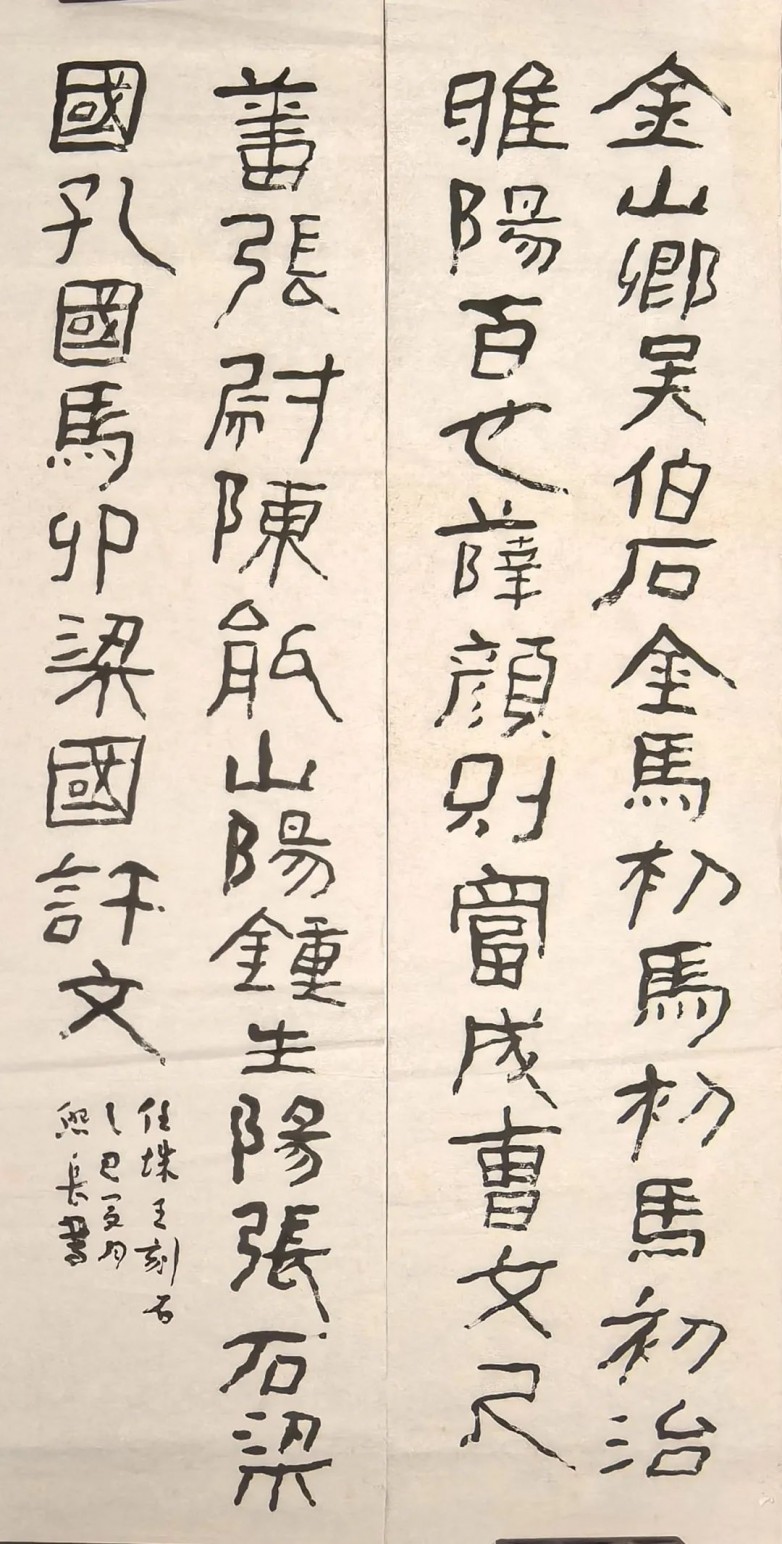 金山鄉吴伯石金馬㓞馬㓞馬初治
睢陽百也薛顏則富成曹文尺
蕃張尉陳山陽鍾生陽張石梁
國孔國馬卯梁國許文
任城王刻石
乙巳夏月
熙長書